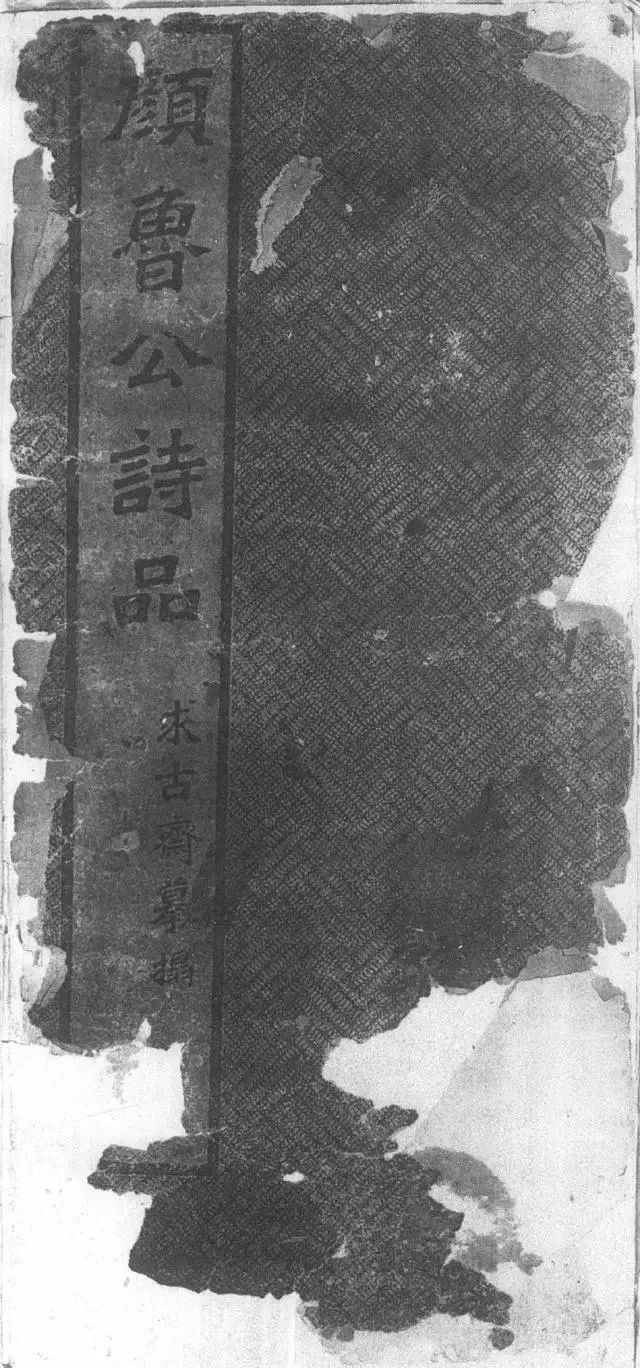 顔魯公詩品
求古齋摹搨